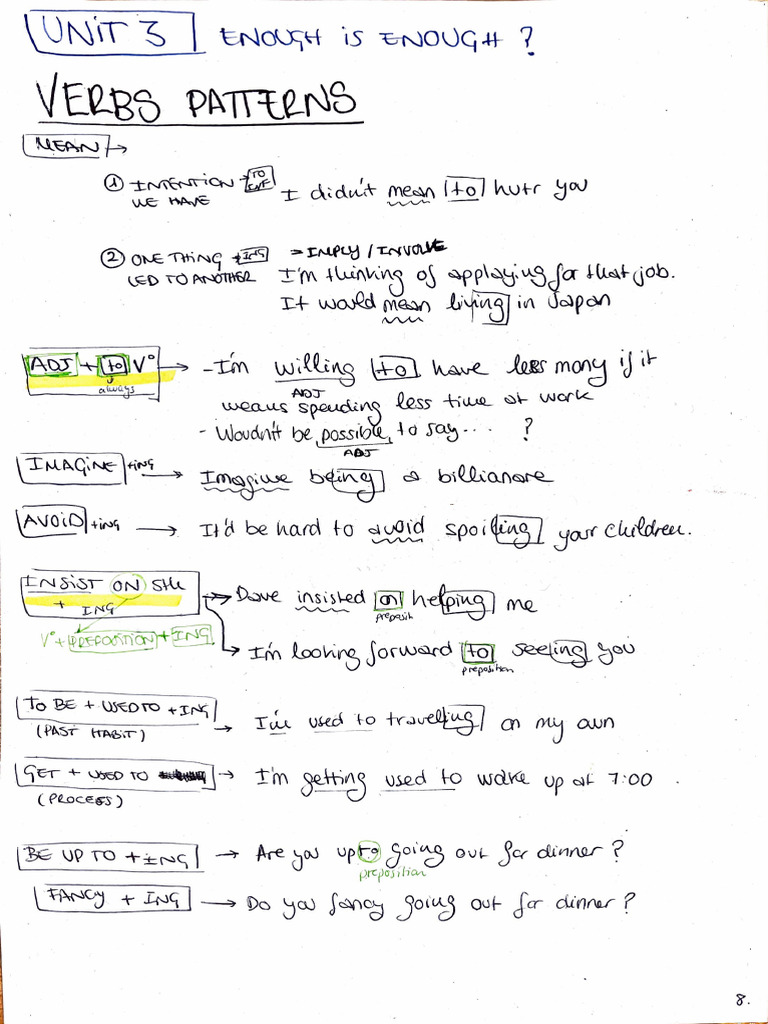 UNIT 3 ENOUGH IS ENOUGH?
VERBS PATTERNS
MEAN →
① INTENTION → TO INF I didn't mean to hutr you
WE HAVE
② ONE THING + ING = IMPLY / INVOLVE
LED TO ANOTHER I'm thinking of applaying for that job.
It would mean living in Japan
ADJ + to V° → - I'm willing to have less mony if it
always ADJ
means spending less time at work
- Woudn't be possible to say... ?
ADJ
IMAGINE +ing → Imagine being a billianore
AVOID +ing → It'd be hard to avoid spoiling your children.
INSIST ON STH → Dave insisted on helping me
+ ING preposit
V° + PREPOSITION + ING → I'm looking forward to seeing you
preposition
TO BE + USED TO + ING → I'm used to traveling on my own
(PAST HABIT)
GET + USED TO → I'm getting used to wake up at 7:00.
(PROCESS)
BE UP TO + ING → Are you up to going out for dinner?
preposition
FANCY + ING → Do you fancy going out for dinner?
8.